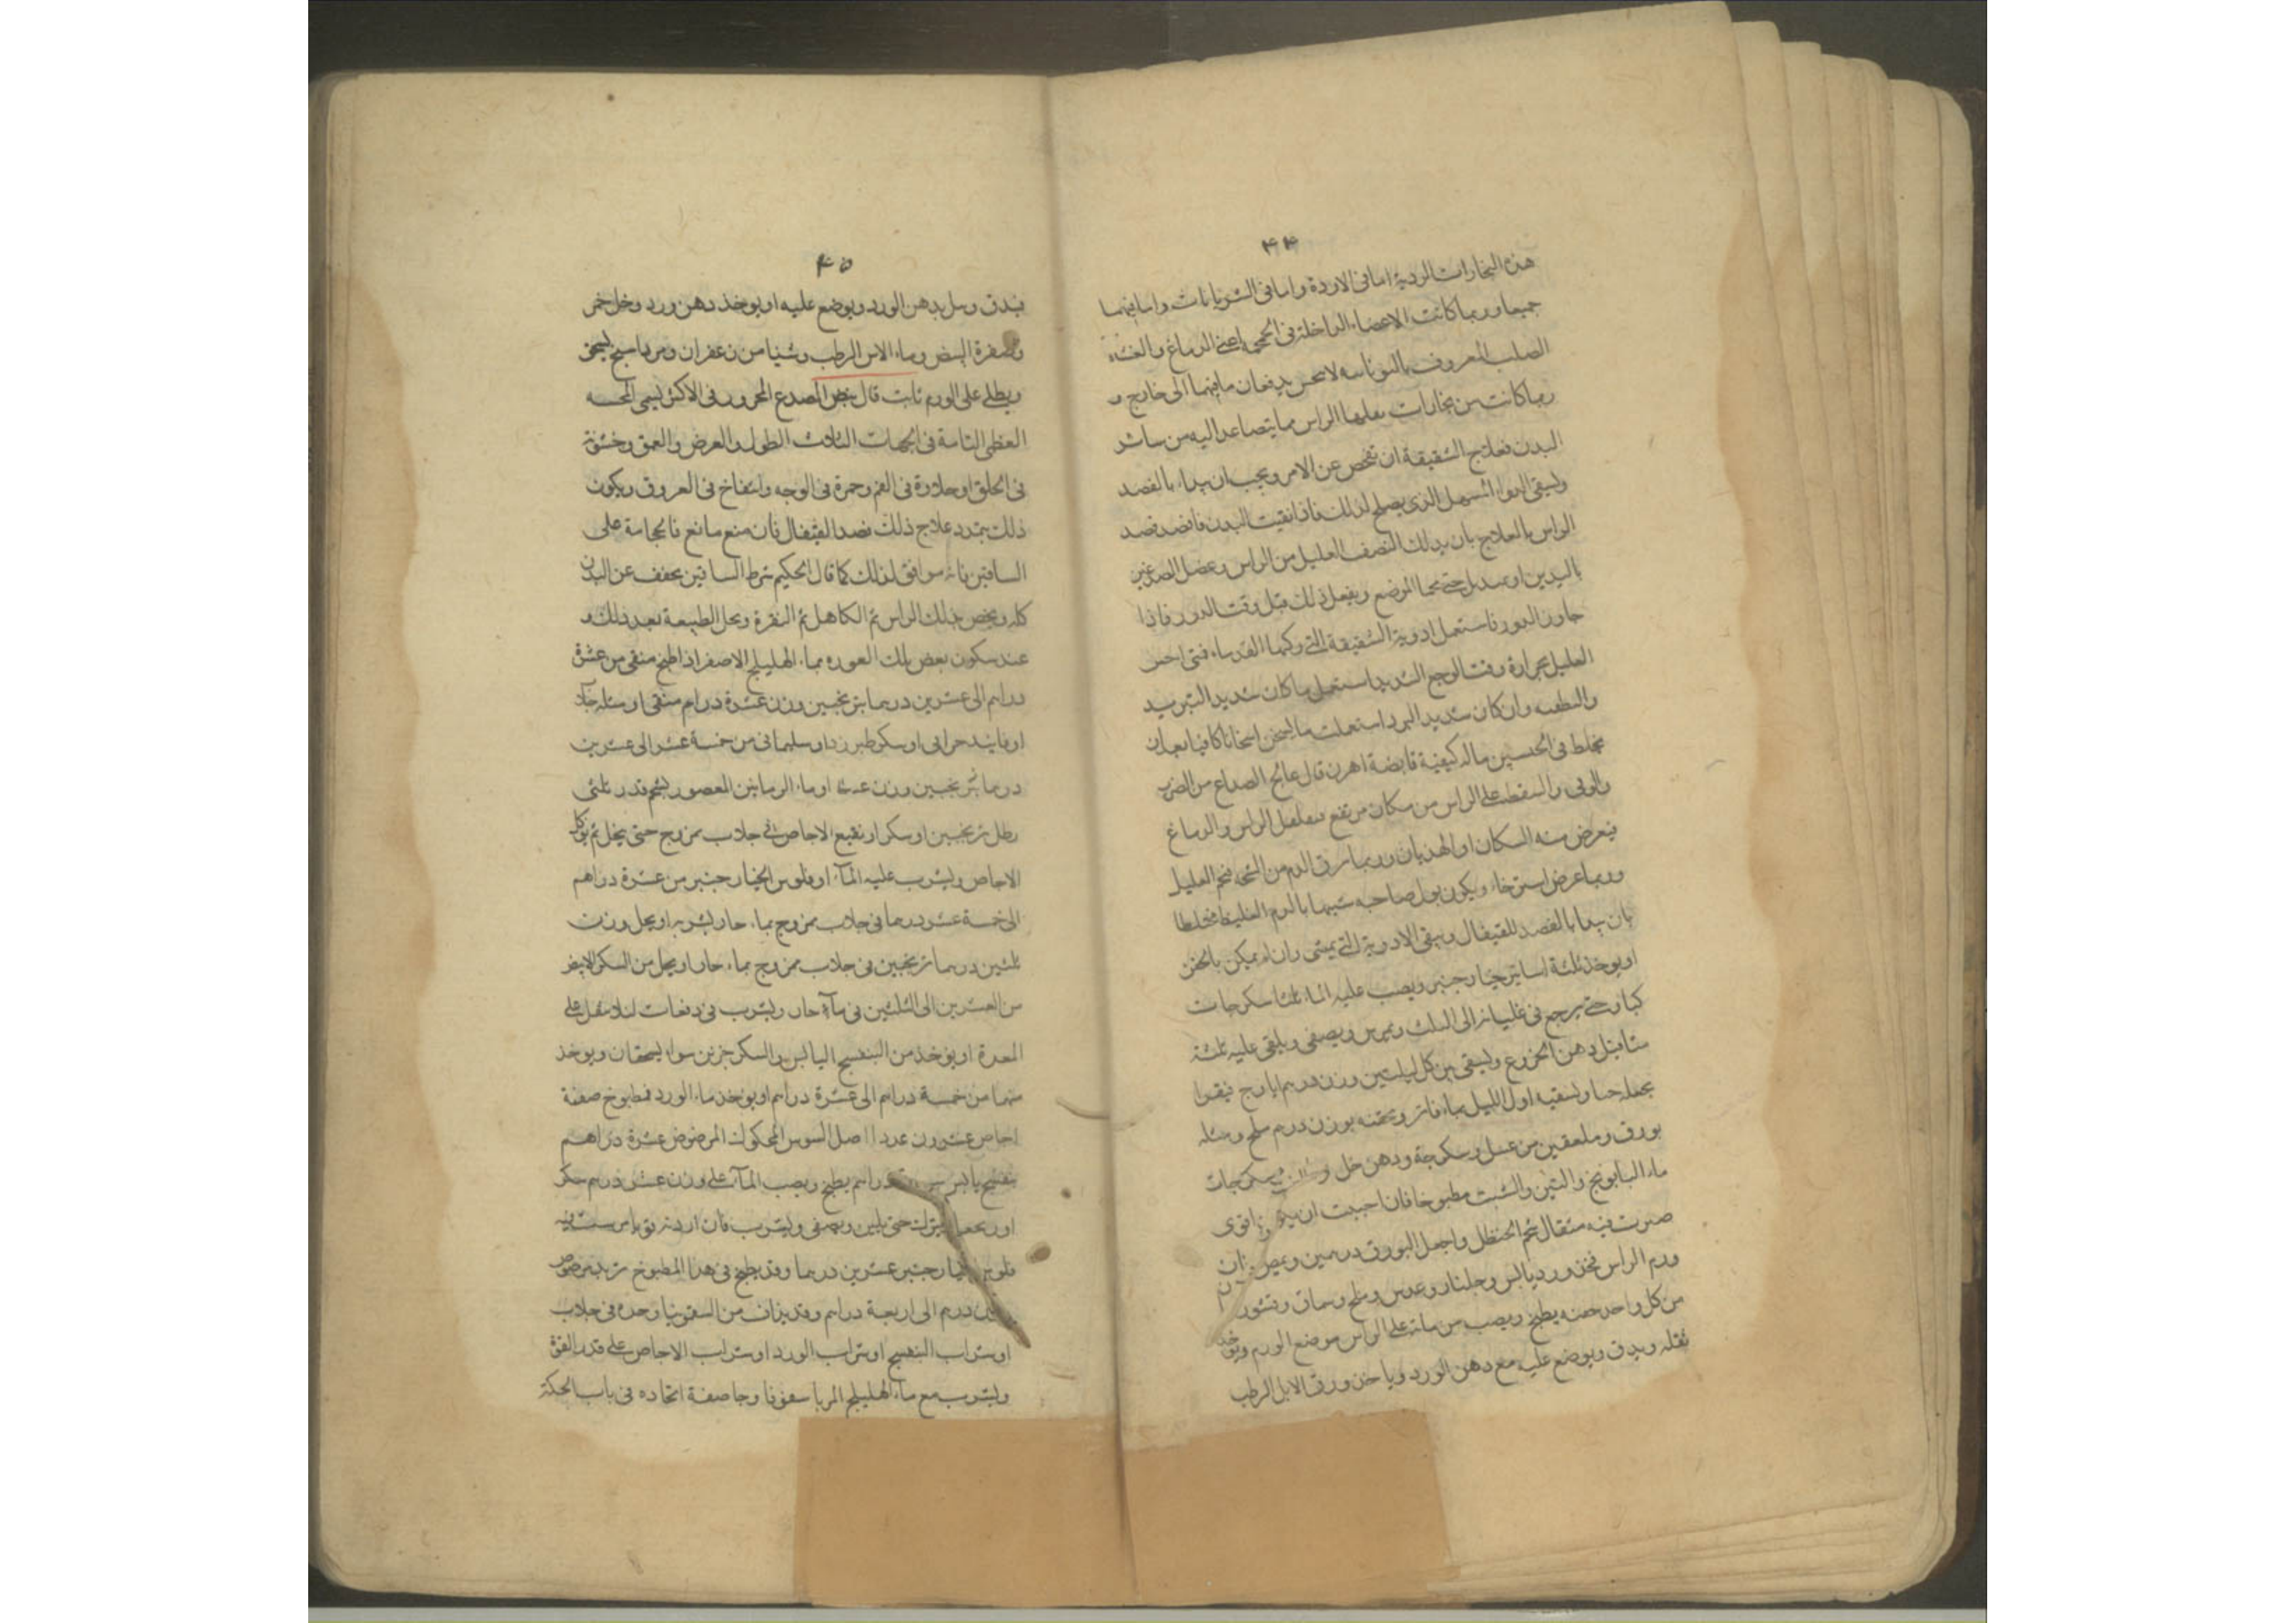 ۴۴
هذه البخارات الردية اما فى الاوردة واما فى الشريانات واما فيهما
جميعا وربما كانت الاعضاء الداخلة فى اعنى الدماغ والغشاء
الصلب المعروف يدفعان ما فيهما الى خارج و
ربما كانت من بخارات الراس مما يتصاعد اليه من سائر
البدن فعلاج الشقيقة ان تفحص عن الامر ويجب ان يبداء بالفصد
ويسقى الدواء المسهل الذى يصلح لذلك فاذا نقيت البدن فاقصد قصد
الراس بالعلاج بان يدلك النصف العليل من الراس وعضل الصدغين
باليدين او بمنديل حتى يحما الموضع ويفعل ذلك قبل وقت الدور فاذا
جاوز الدور فاستعمل ادوية الشقيقة التى القدماء فمتى احس
العليل بحرارة وقت الوجع الشديد استعمل ما كان شديد التبريد
وان كان شديد البرد استعملت ما يسخن اسخانا كافيا بعد ان
يخلط فى الجنسين ماله كيفية قابضة اهرن قال عالج الصداع من الضرب
والسقطة على الراس من مكان مرتفع الراس والدماغ
فيعرض منه السكات او الهذيان وربما الدم من العليل
وربما عرض استرخاء ويكون بول صاحبه شبيها بالدم الغليظ مختلطا
بان يبدا بالفصد للقيفال ويسقى الادوية التى يمشى وان لم يمكن بالحقن
او يوخذ ثلثة اساتير خيار جنبر ويصب عليه الماء ثلثا سكرجات
كبار حتى يرجع فى غليانه الى الثلث ويمرس ويصفى ويلقى عليه ثلثة
مثاقيل دهن الخروع ويسقى بين كل ليلتين وزن درهم ايارج فيقرا
يجعله حبا ويسقيه اول الليل بماء فاتر ويحقنه بوزن درهم ملح ومثله
بورق وملعقين من عسل وسكرجة ودهن خل سكرجات
ماء البابونج والتين والشبت مطبوخا فان احببت ان اقوى
صيرت فيه مثقال شحم الحنظل واجعل البورق درهمين فان
ورم الراس فخذ ورد يابس وجلنار وعدس وملح وسماق وقشور
من كل واحد حصة يطبخ ويصب من مائه على الراس موضع الورم ويوخذ
ثقله ويدق ويوضع عليه مع دهن الورد وياخذ ورق الابل الرطب
۴۵
فيدق ويبل بدهن الورد ويوضع عليه او يوخذ دهن ورد وخل خمر
وصفرة البيض وماء الاس الرطب وشيا من زعفران ومرداسنج ليسحق
ويطلى على الورم ثابت قال نبض الصدع المحرور فى الاكثر يسمى
العظمى التامة فى الجهات الثلاث الطول والعرض والعمق وخشونة
فى الحلق او حلاوة فى الفم وحمرة فى الوجه وانتفاخ فى العروق ويكون
ذلك بتمدد علاج ذلك فصد القيفال فان منع مانع فالحجامة على
الساقين فانه موافق لذلك كما قال الحكيم شرط الساقين يخفف عن البدن
كله ويخص بذلك الراس ثم الكاهل ثم النقرة ويحل الطبيعة بعد ذلك و
عند سكون بعض تلك بماء الهليلج الاصفر اذا طبخ منقى من عشرة
دراهم الى عشرين درهما بترنجبين وزن عشرة دراهم منقى او مثله
او فانيذ او سكر طبرزد او سليمانى من خمسة عشر الى عشرين
درهما ترنجبين وزن عشرة او ماء الرمانين المعصور بشحم قدر ثلثى
رطل ترنجبين او سكر او نقيع الاجاص فى جلاب ممزوج حتى ينحل ثم يوكل
الاجاص ويشرب عليه الماء او فلوس الخيار جنبر من عشرة دراهم
الى خمسة عشر درهما فى جلاب ممزوج بماء حار يشربه او يحل وزن
ثلثين درهما ترنجبين فى جلاب ممزوج بماء حار او يحل من السكر الابيض
من العشرين الى الثلثين فى ماء حار ويشرب فى دفعات لئلا يثقل على
المعدة او يوخذ من البنفسج اليابس والسكر جزئين سواء يسحقان ويوخذ
منهما من خمسة دراهم الى عشرة دراهم او يوخذ ماء الورد مطبوخ صفة
اجاص عشرون عددا اصل السوس المحكوك المرضوض عشرة دراهم
بنفسج يابس دراهم يطبخ ويصب الماء على وزن عشر درهم سكر
او يترك حتى يلين ويصفى ويشرب فان اردته فيه
فلوس خيار جنبر عشرين درهما وقد يطبخ فى هذا المطبوخ
درهم الى اربعة دراهم وقد يزاد من السقمونيا وحده فى جلاب
او شراب البنفسج او شراب الورد او شراب الاجاص على قدر القوة
ويشرب مع ماء الهليلج المربا سقمونيا وجا صفة اتخاذه فى باب الحكة